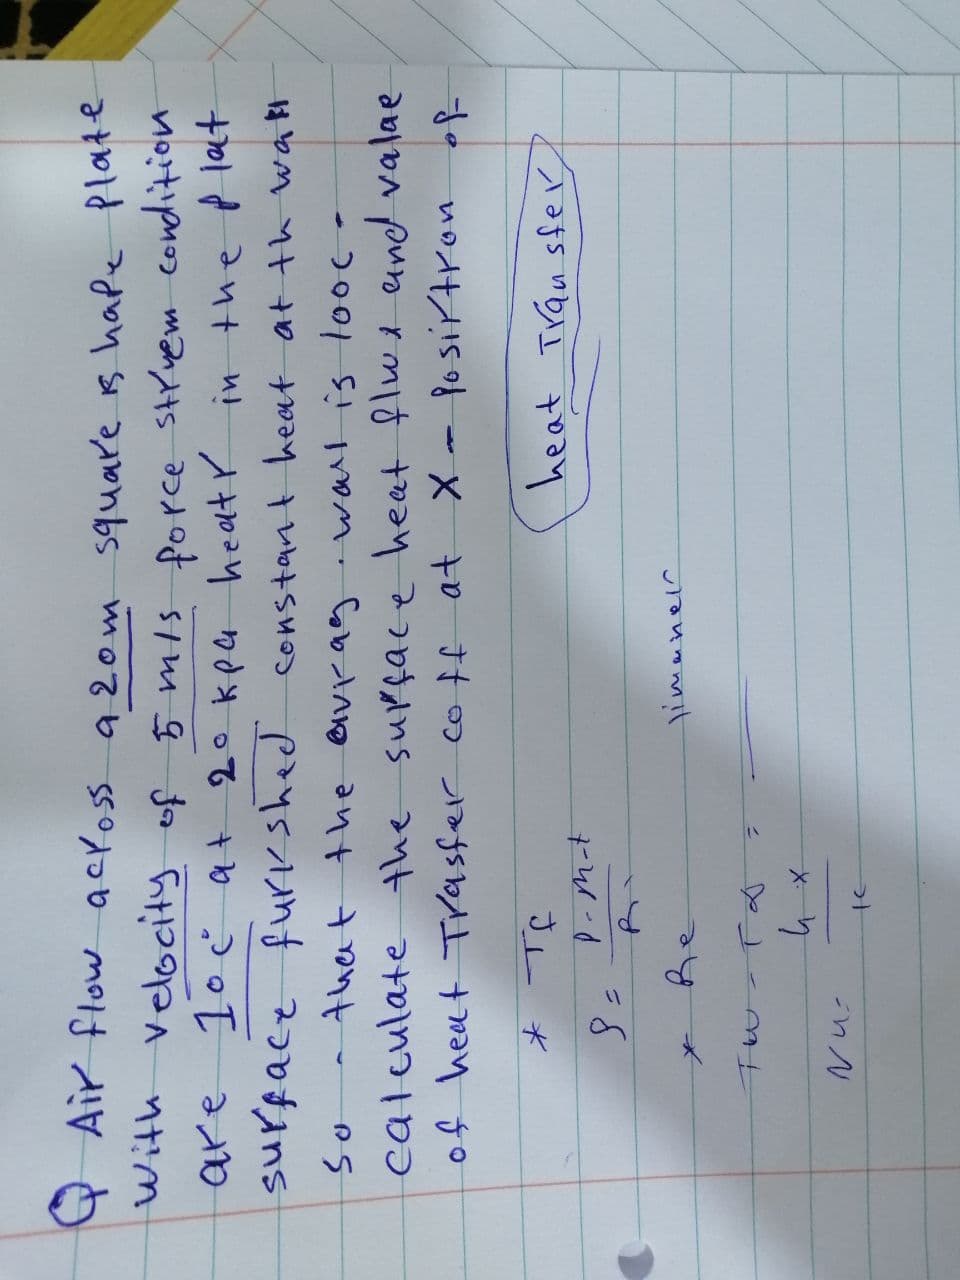 Q Air flow across a 20m square is hape plate
with velocity of 5 m/s force strvem condition
are 10c° at 20 kpa heatr in the plat
surface furkshed constant heat at th wall
so - that the avrag. wall is 100c -
calculate the surface heat flux and valae
of heat Trasfer coff at X - Posirtron of
heat Transfer
* Tf
ρ =
* Re limaner
Tw - T∞ =
Nu = hx / k